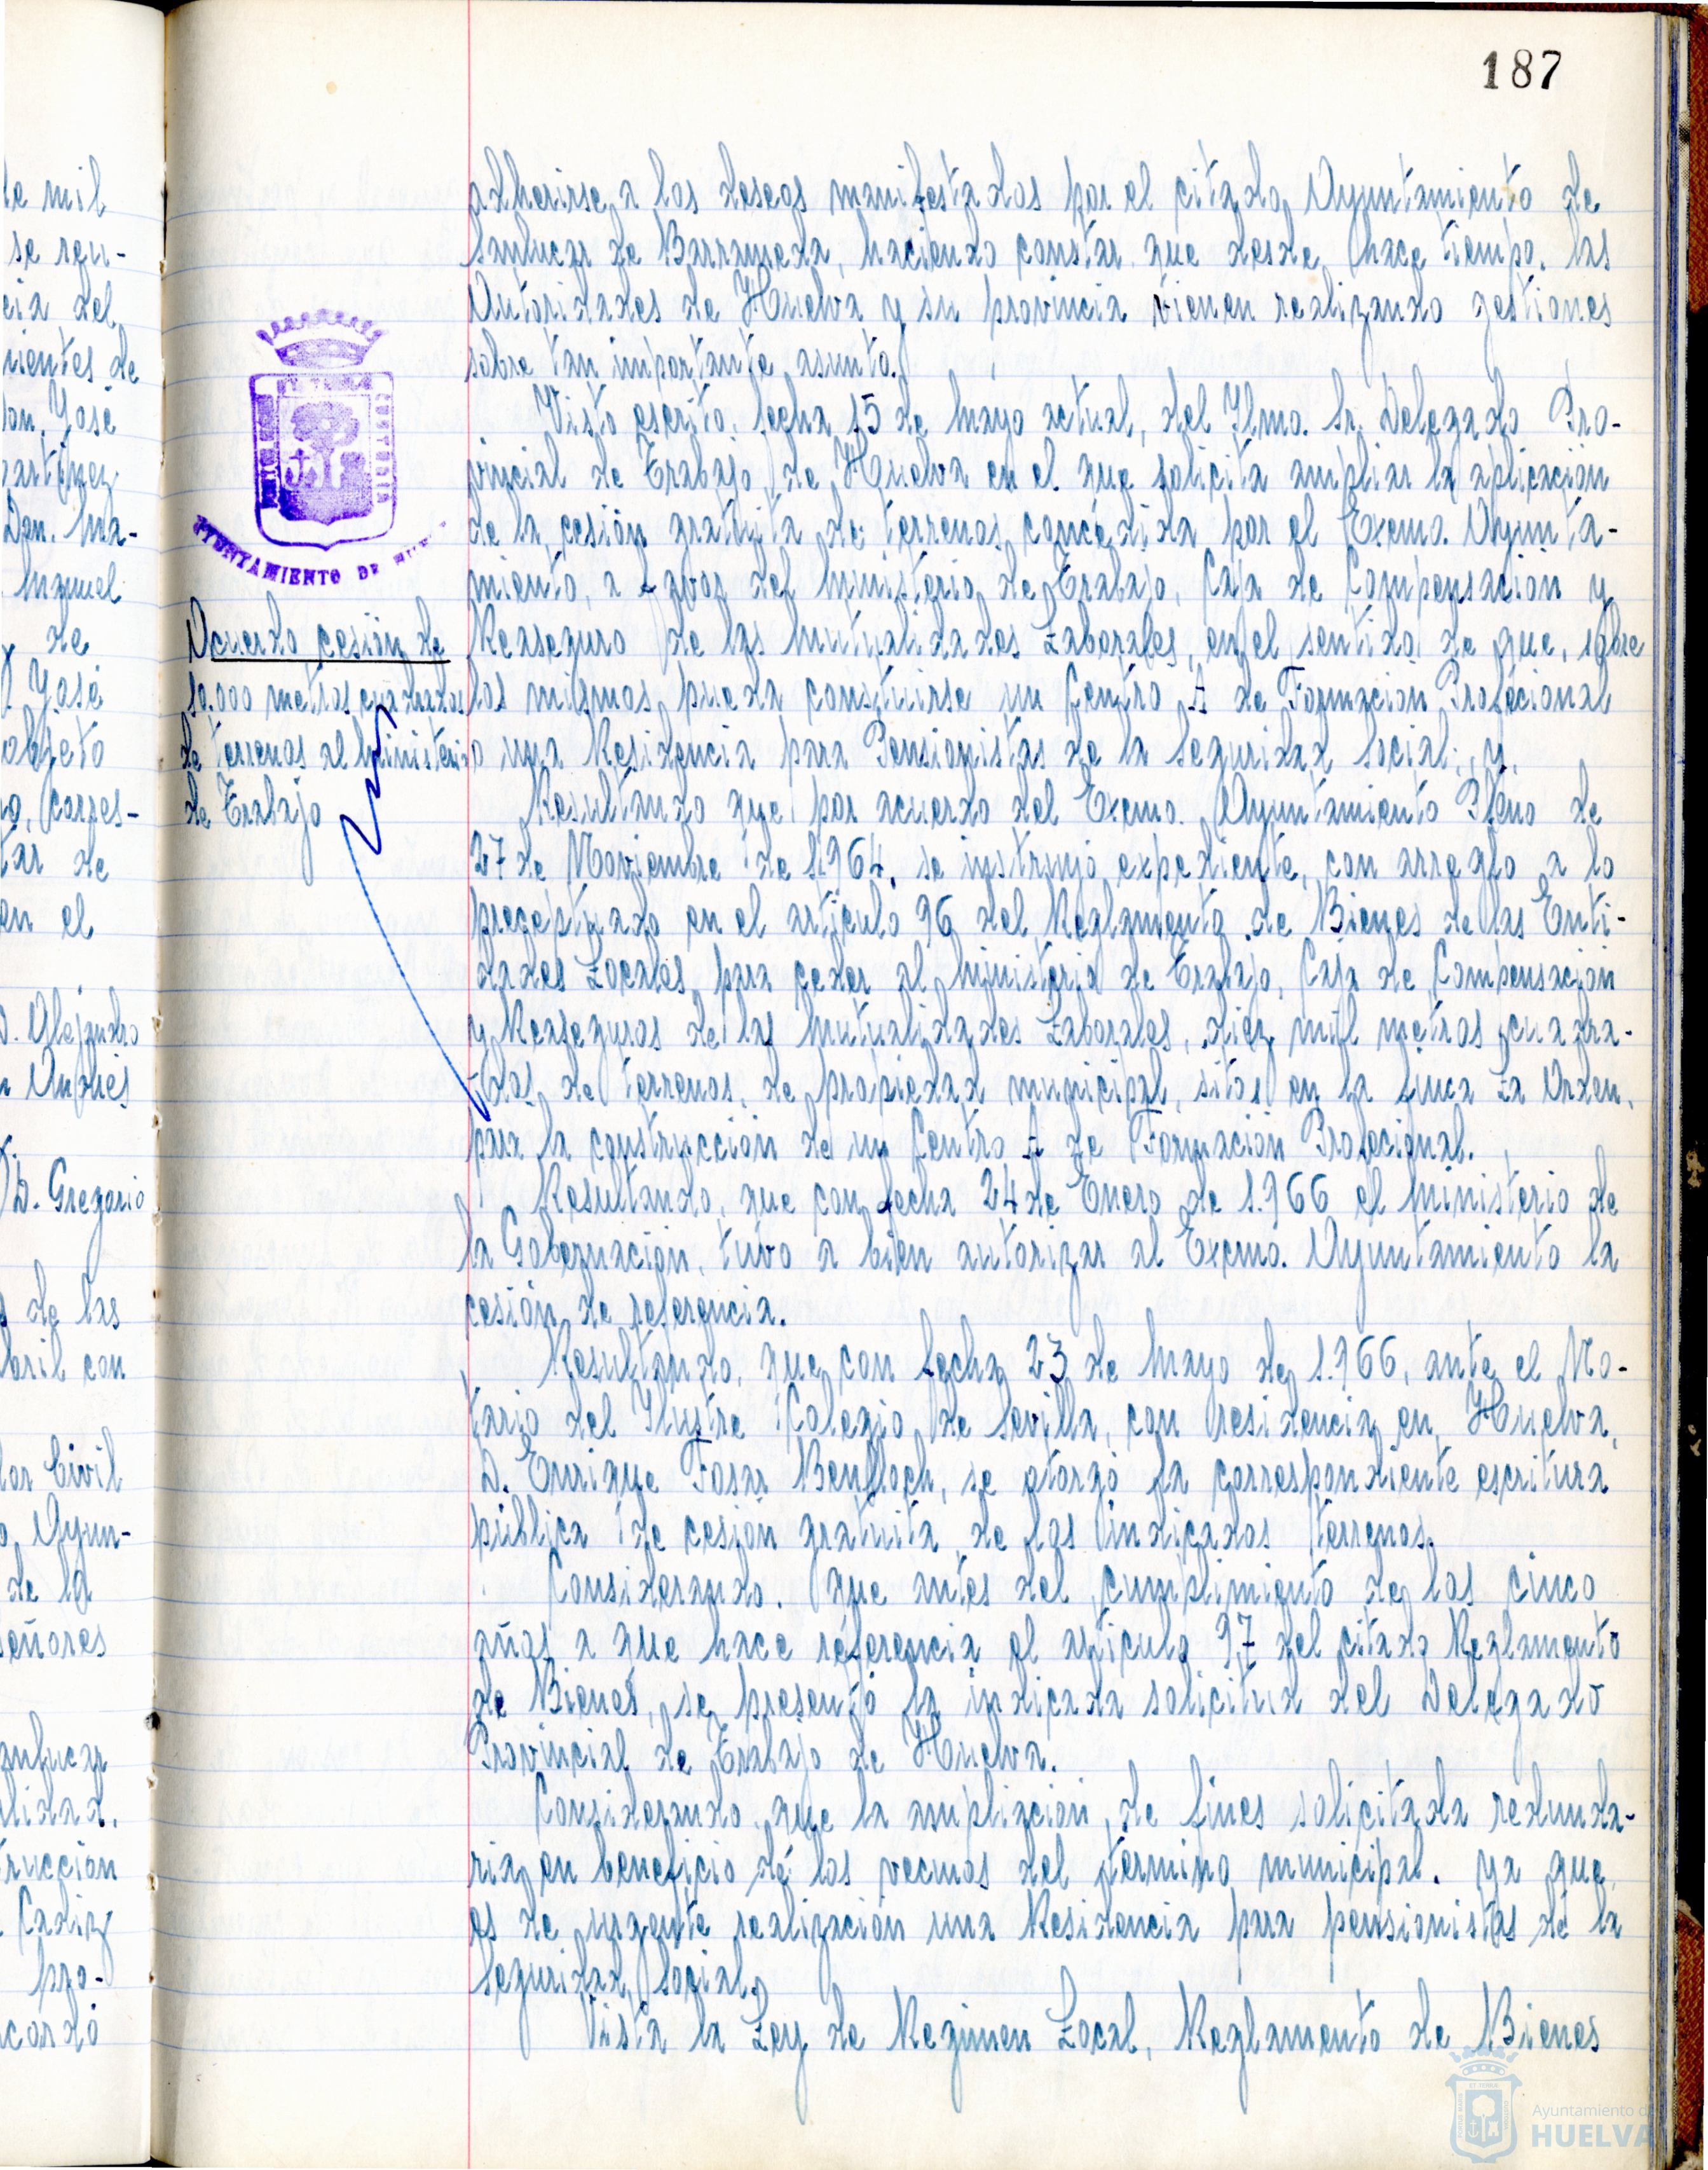 187
adherirse a los deseos manifestados por el citado Ayuntamiento de
Sanlucar de Barrameda, haciendo constar que desde hace tiempo, las
Autoridades de Huelva y su provincia vienen realizando gestiones
sobre tan importante asunto.
Visto escrito, fecha 15 de Mayo actual, del Ylmo. Sr. Delegado Pro-
vincial de Trabajo de Huelva en el que solicita ampliar la aplicación
de la cesión gratuita de terrenos concedida por el Excmo. Ayunta-
miento, a favor del Ministerio de Trabajo, Caja de Compensación y
Reaseguro de las Mutualidades Laborales, en el sentido de que, sobre
los mismos pueda construirse un Centro A de Formación Profecional
o una Residencia para Pensionistas de la Seguridad Social; y,
Resultando que por acuerdo del Excmo. Ayuntamiento Pleno de
27 de Noviembre de 1.964, se instruyó expediente, con arreglo a lo
preceptuado en el artículo 96 del Reglamento de Bienes de las Enti-
dades Locales, para ceder al Ministerio de Trabajo, Caja de Compensación
y Reaseguros de las Mutualidades Laborales, diez mil metros cuadra-
dos de terrenos, de propiedad municipal, sitos en la finca La Orden,
para la construcción de un Centro A de Formación Profecional.
Resultando, que con fecha 24 de Enero de 1.966 el Ministerio de
la Gobernación, tuvo a bien autorizar al Excmo. Ayuntamiento la
cesión de referencia.
Resultando, que con fecha 23 de Mayo de 1.966, ante el No-
tario del Ilustre Colegio de Sevilla, con residencia en Huelva,
D. Enrique Fosar Benlloch, se otorgó la correspondiente escritura
pública de cesión gratuita de los indicados terrenos.
Considerando. Que antes del cumplimiento de los cinco
años a que hace referencia el artículo 97 del citado Reglamento
de Bienes, se presentó la indicada solicitud del Delegado
Provincial de Trabajo de Huelva.
Considerando, que la ampliación de fines solicitada redunda-
ria en beneficio de los vecinos del término municipal. ya que,
es de urgente realización una Residencia para pensionistas de la
Seguridad Social.
Vista la Ley de Regimen Local, Reglamento de Bienes
AYUNTAMIENTO DE
Acuerdo cesión de
10.000 metros cuadrados
de terrenos al Ministerio
de Trabajo
de mil
se reu-
cia del
nientes de
Don José
Martinez
Don Ma-
Manuel
de
José
objeto
corres-
tar de
en el
D. Alejandro
Andrés
D. Gregorio
de las
bril con
Civil
Ayun-
de la
señores
anlucar
lidad.
trucción
Cadiz
pro-
cordó
Ayuntamiento de
HUELVA